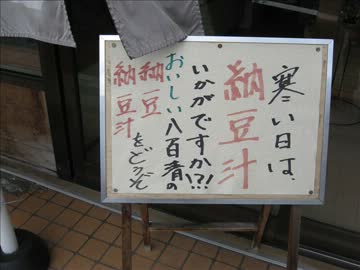 寒い日は、
納豆汁
いかがですか?!
おいしい八百青の
納豆
納豆汁
をどうぞ